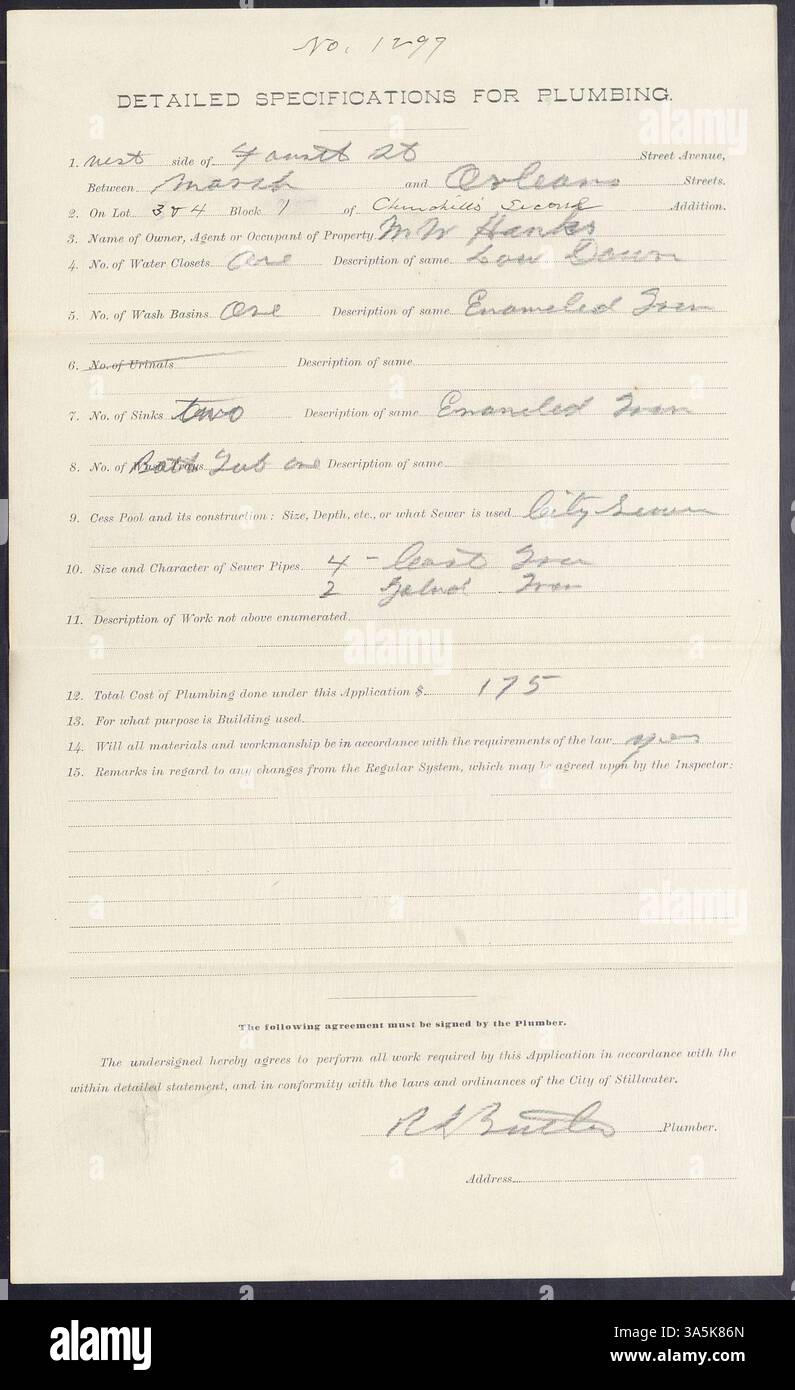 No. 1297
DETAILED SPECIFICATIONS FOR PLUMBING.
1. West side of Fourth St Street Avenue,
Between Marsh and Orleans Streets.
2. On Lot 3 & 4 Block 1 of Churchill's Second Addition.
3. Name of Owner, Agent or Occupant of Property. M W Hanks
4. No. of Water Closets One Description of same Low Down
5. No. of Wash Basins One Description of same Enameled Iron
6. No. of Urinals Description of same
7. No. of Sinks two Description of same Enameled Iron
8. No. of Bath Tub one Description of same
9. Cess Pool and its construction: Size, Depth, etc., or what Sewer is used City Sewer
10. Size and Character of Sewer Pipes 4 - Cast Iron
2 Galvd Iron
11. Description of Work not above enumerated
12. Total Cost of Plumbing done under this Application $ 175
13. For what purpose is Building used
14. Will all materials and workmanship be in accordance with the requirements of the law yes
15. Remarks in regard to any changes from the Regular System, which may be agreed upon by the Inspector:
The following agreement must be signed by the Plumber.
The undersigned hereby agrees to perform all work required by this Application in accordance with the
within detailed statement, and in conformity with the laws and ordinances of the City of Stillwater.
Butler Plumber.
Address
alamy
Image ID: 3A5K86N
www.alamy.com